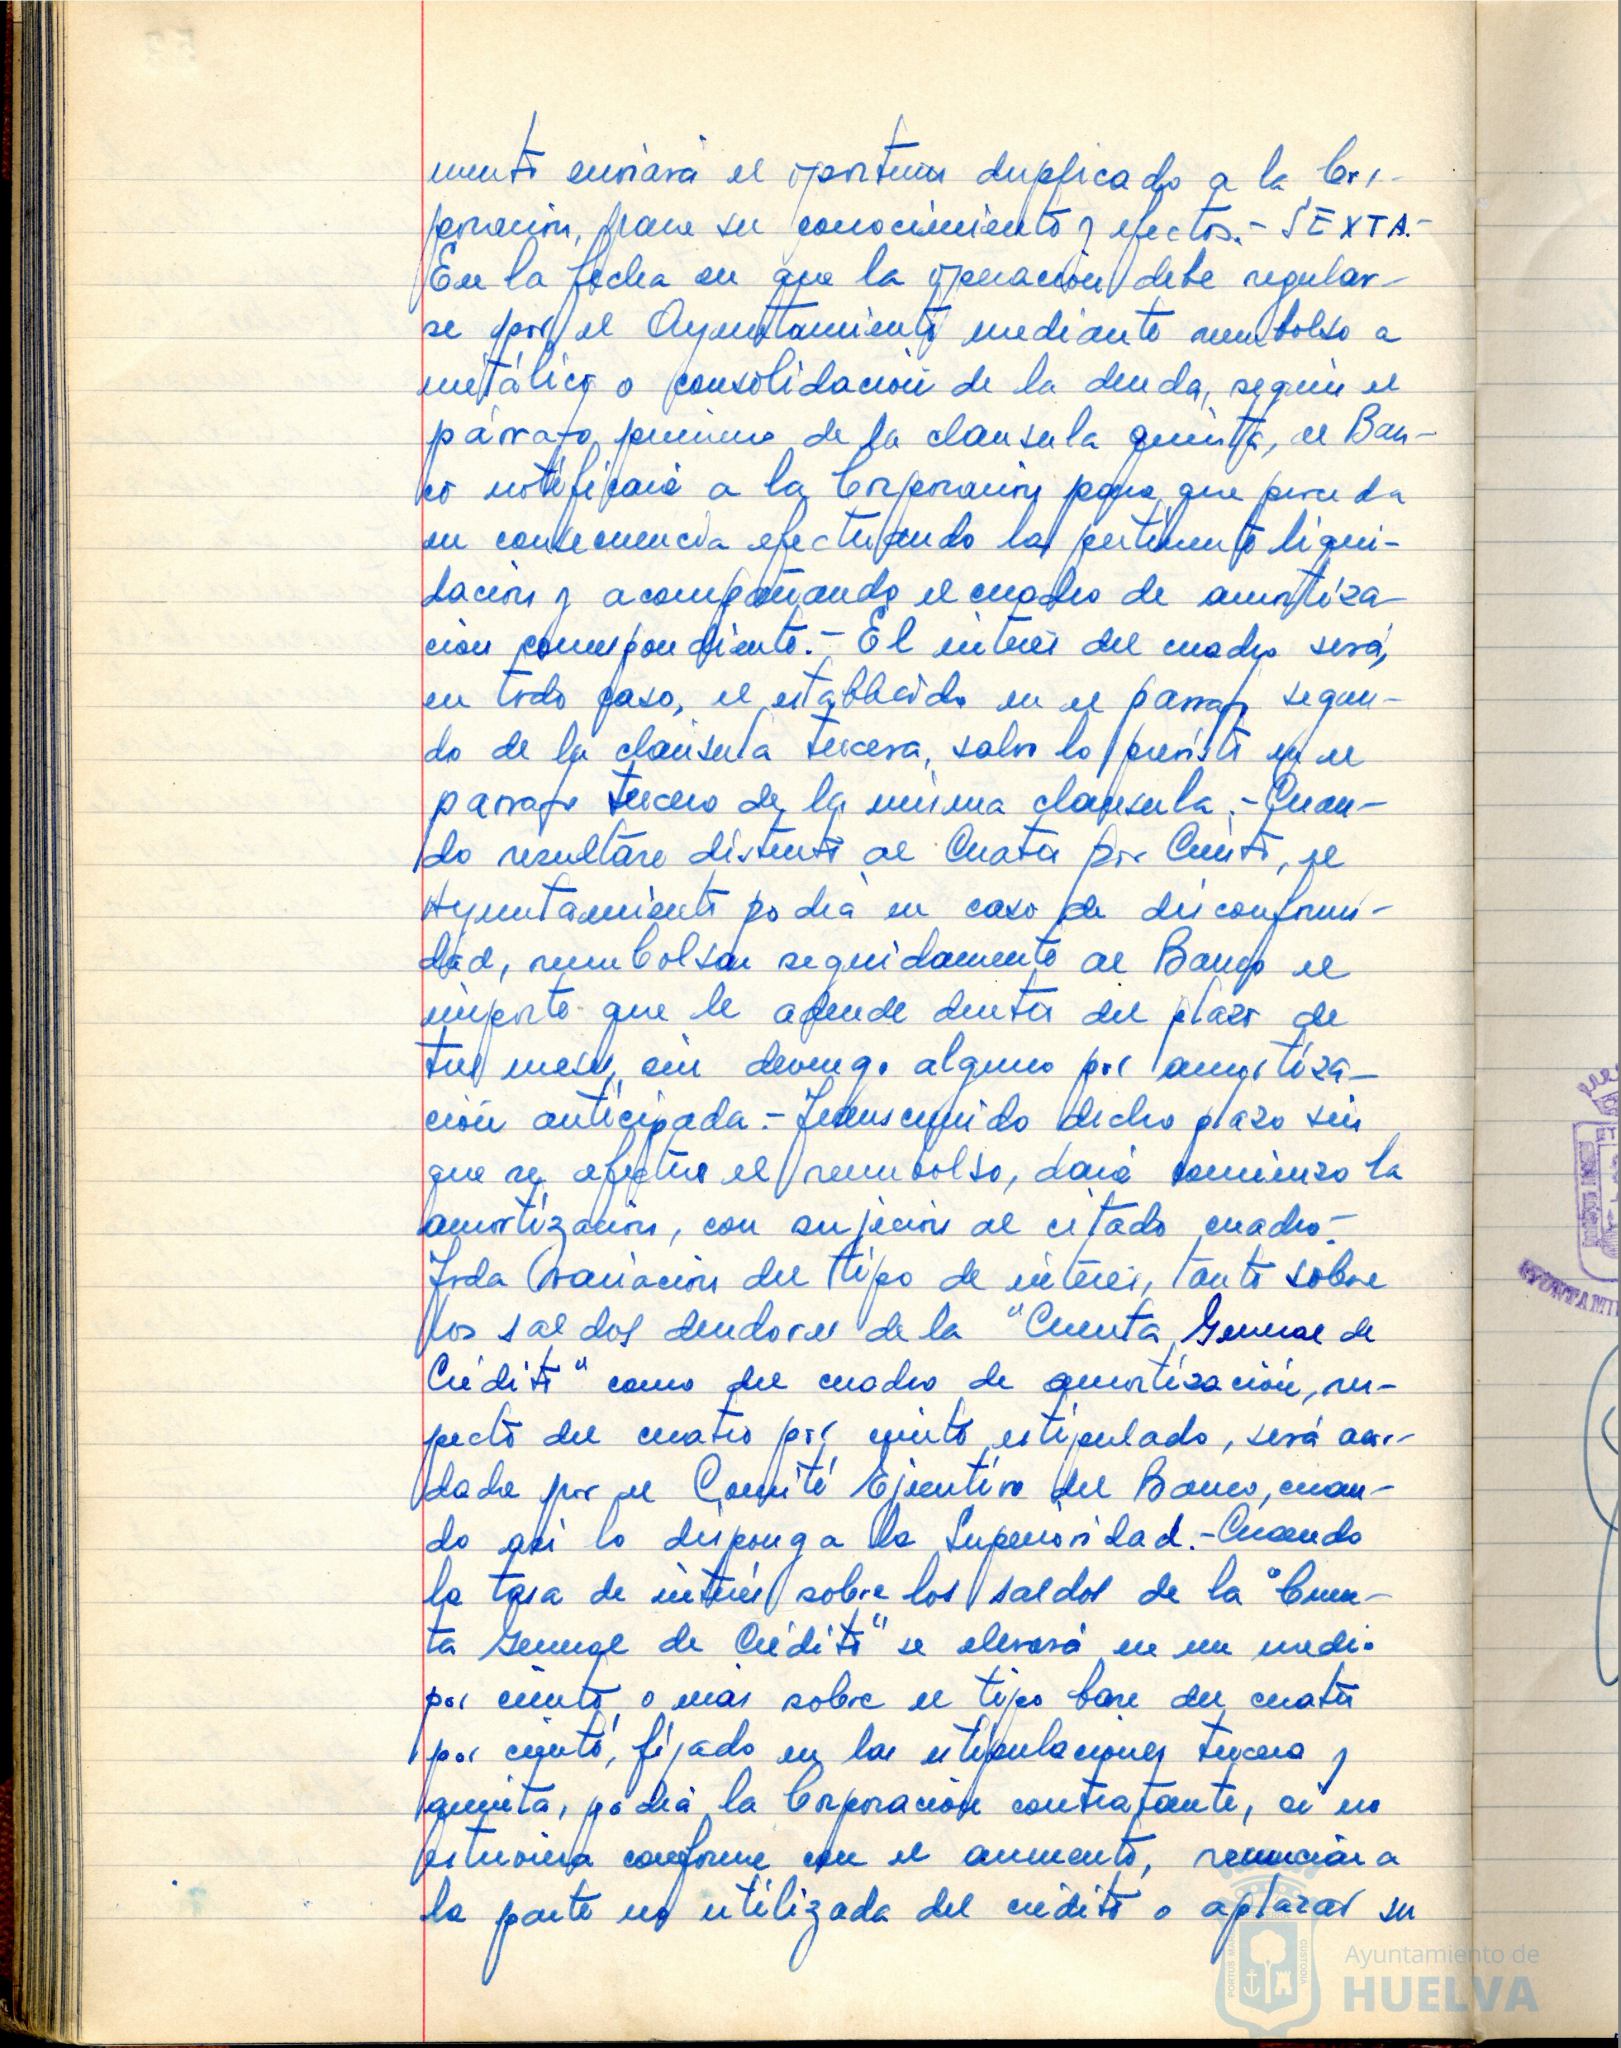 mente enviará el oportuno duplicado a la Cor-
poración, para su conocimiento y efectos.- SEXTA.-
En la fecha en que la operación debe regular-
se por el Ayuntamiento mediante reembolso a
metálico o consolidación de la deuda, según el
párrafo primero de la clausula quinta, el Ban-
co notificará a la Corporación para que proceda
en consecuencia efectuando la pertinente liqui-
dación y acompañando el cuadro de amortiza-
ción correspondiente.- El interés del cuadro será,
en todo caso, el establecido en el parrafo segun-
do de la clausula tercera, salvo lo previsto en el
parrafo tercero de la misma clausula.- Cuan-
do resultare distinto al Cuatro por Ciento, el
Ayuntamiento podrá en caso de disconformi-
dad, reembolsar seguidamente al Banco el
importe que le adeude dentro del plazo de
tres meses, sin devengo alguno por amortiza-
ción anticipada.- Transcurrido dicho plazo sin
que se efectue el reembolso, dará comienzo la
amortización, con sujeción al citado cuadro.-
Toda variación del tipo de interés, tanto sobre
los saldos deudores de la "Cuenta General de
Crédito" como del cuadro de amortización, res-
pecto del cuatro por ciento estipulado, será acor-
dada por el Comité Ejecutivo del Banco, cuan-
do asi lo disponga la Superioridad.- Cuando
la tasa de interés sobre los saldos de la "Cuen-
ta General de Crédito" se elevara en un medio
por ciento o más sobre el tipo base del cuatro
por ciento, fijado en las estipulaciones tercera y
quinta, podrá la Corporación contratante, si no
estuviera conforme con el aumento, renunciar a
la parte no utilizada del crédito o aplazar su
AYUNTAMI
PORTUS MARIS
CUSTODIA
Ayuntamiento de
HUELVA